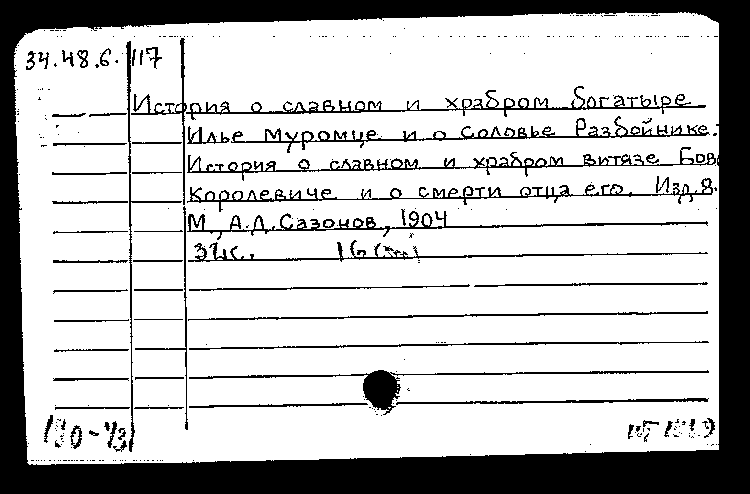 34.48.6.117
История о славном и храбром богатыре
Илье Муромце и о Соловье Разбойнике.-
История о славном и храбром витязе Бове
Королевиче и о смерти отца его. Изд.8.
М., А.Д.Сазонов, 1904
с. 16